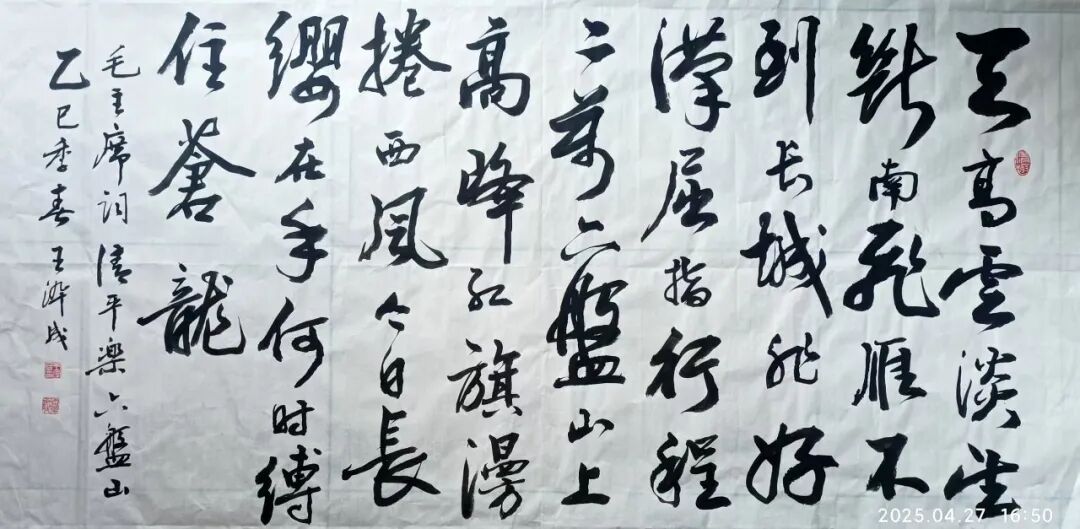 天高雲淡望
斷南飛雁不
到长城非好
漢屈指行程
二萬六盤山上
高峰紅旗漫
捲西風今日長
纓在手何时縛
住蒼龍
毛主席词清平樂六盤山
乙巳季春王成
2025.04.27 16:50